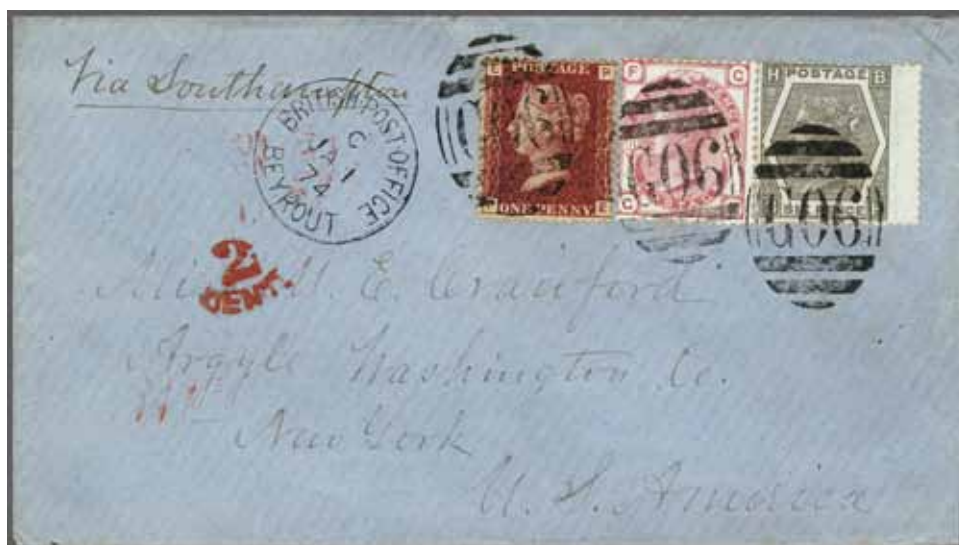 Via Southampton
BRITISH POST OFFICE
C
JA 1
74
BEYROUT
E P
POSTAGE
ONE PENNY
P E
F G
G
G06
H POSTAGE B
G06
2
CENT.
Miss M. E. Crawford
Argyle Washington Co.
New York
U. S. America